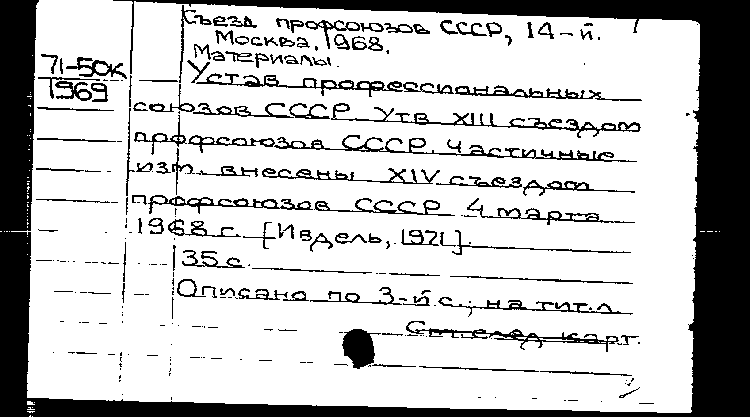 Съезд профсоюзов СССР, 14-й.
Москва, 1968.
Материалы.
71-50к
1969
Устав профессиональных
союзов СССР. Утв XIII съездом
профсоюзов СССР. Частичные
изм. внесены XIV съездом
профсоюзов СССР 4 марта
1968 г. [Ивдель, 1971].
35 с.
Описано по 3-й с.; на тит.л.
См. след. карт.